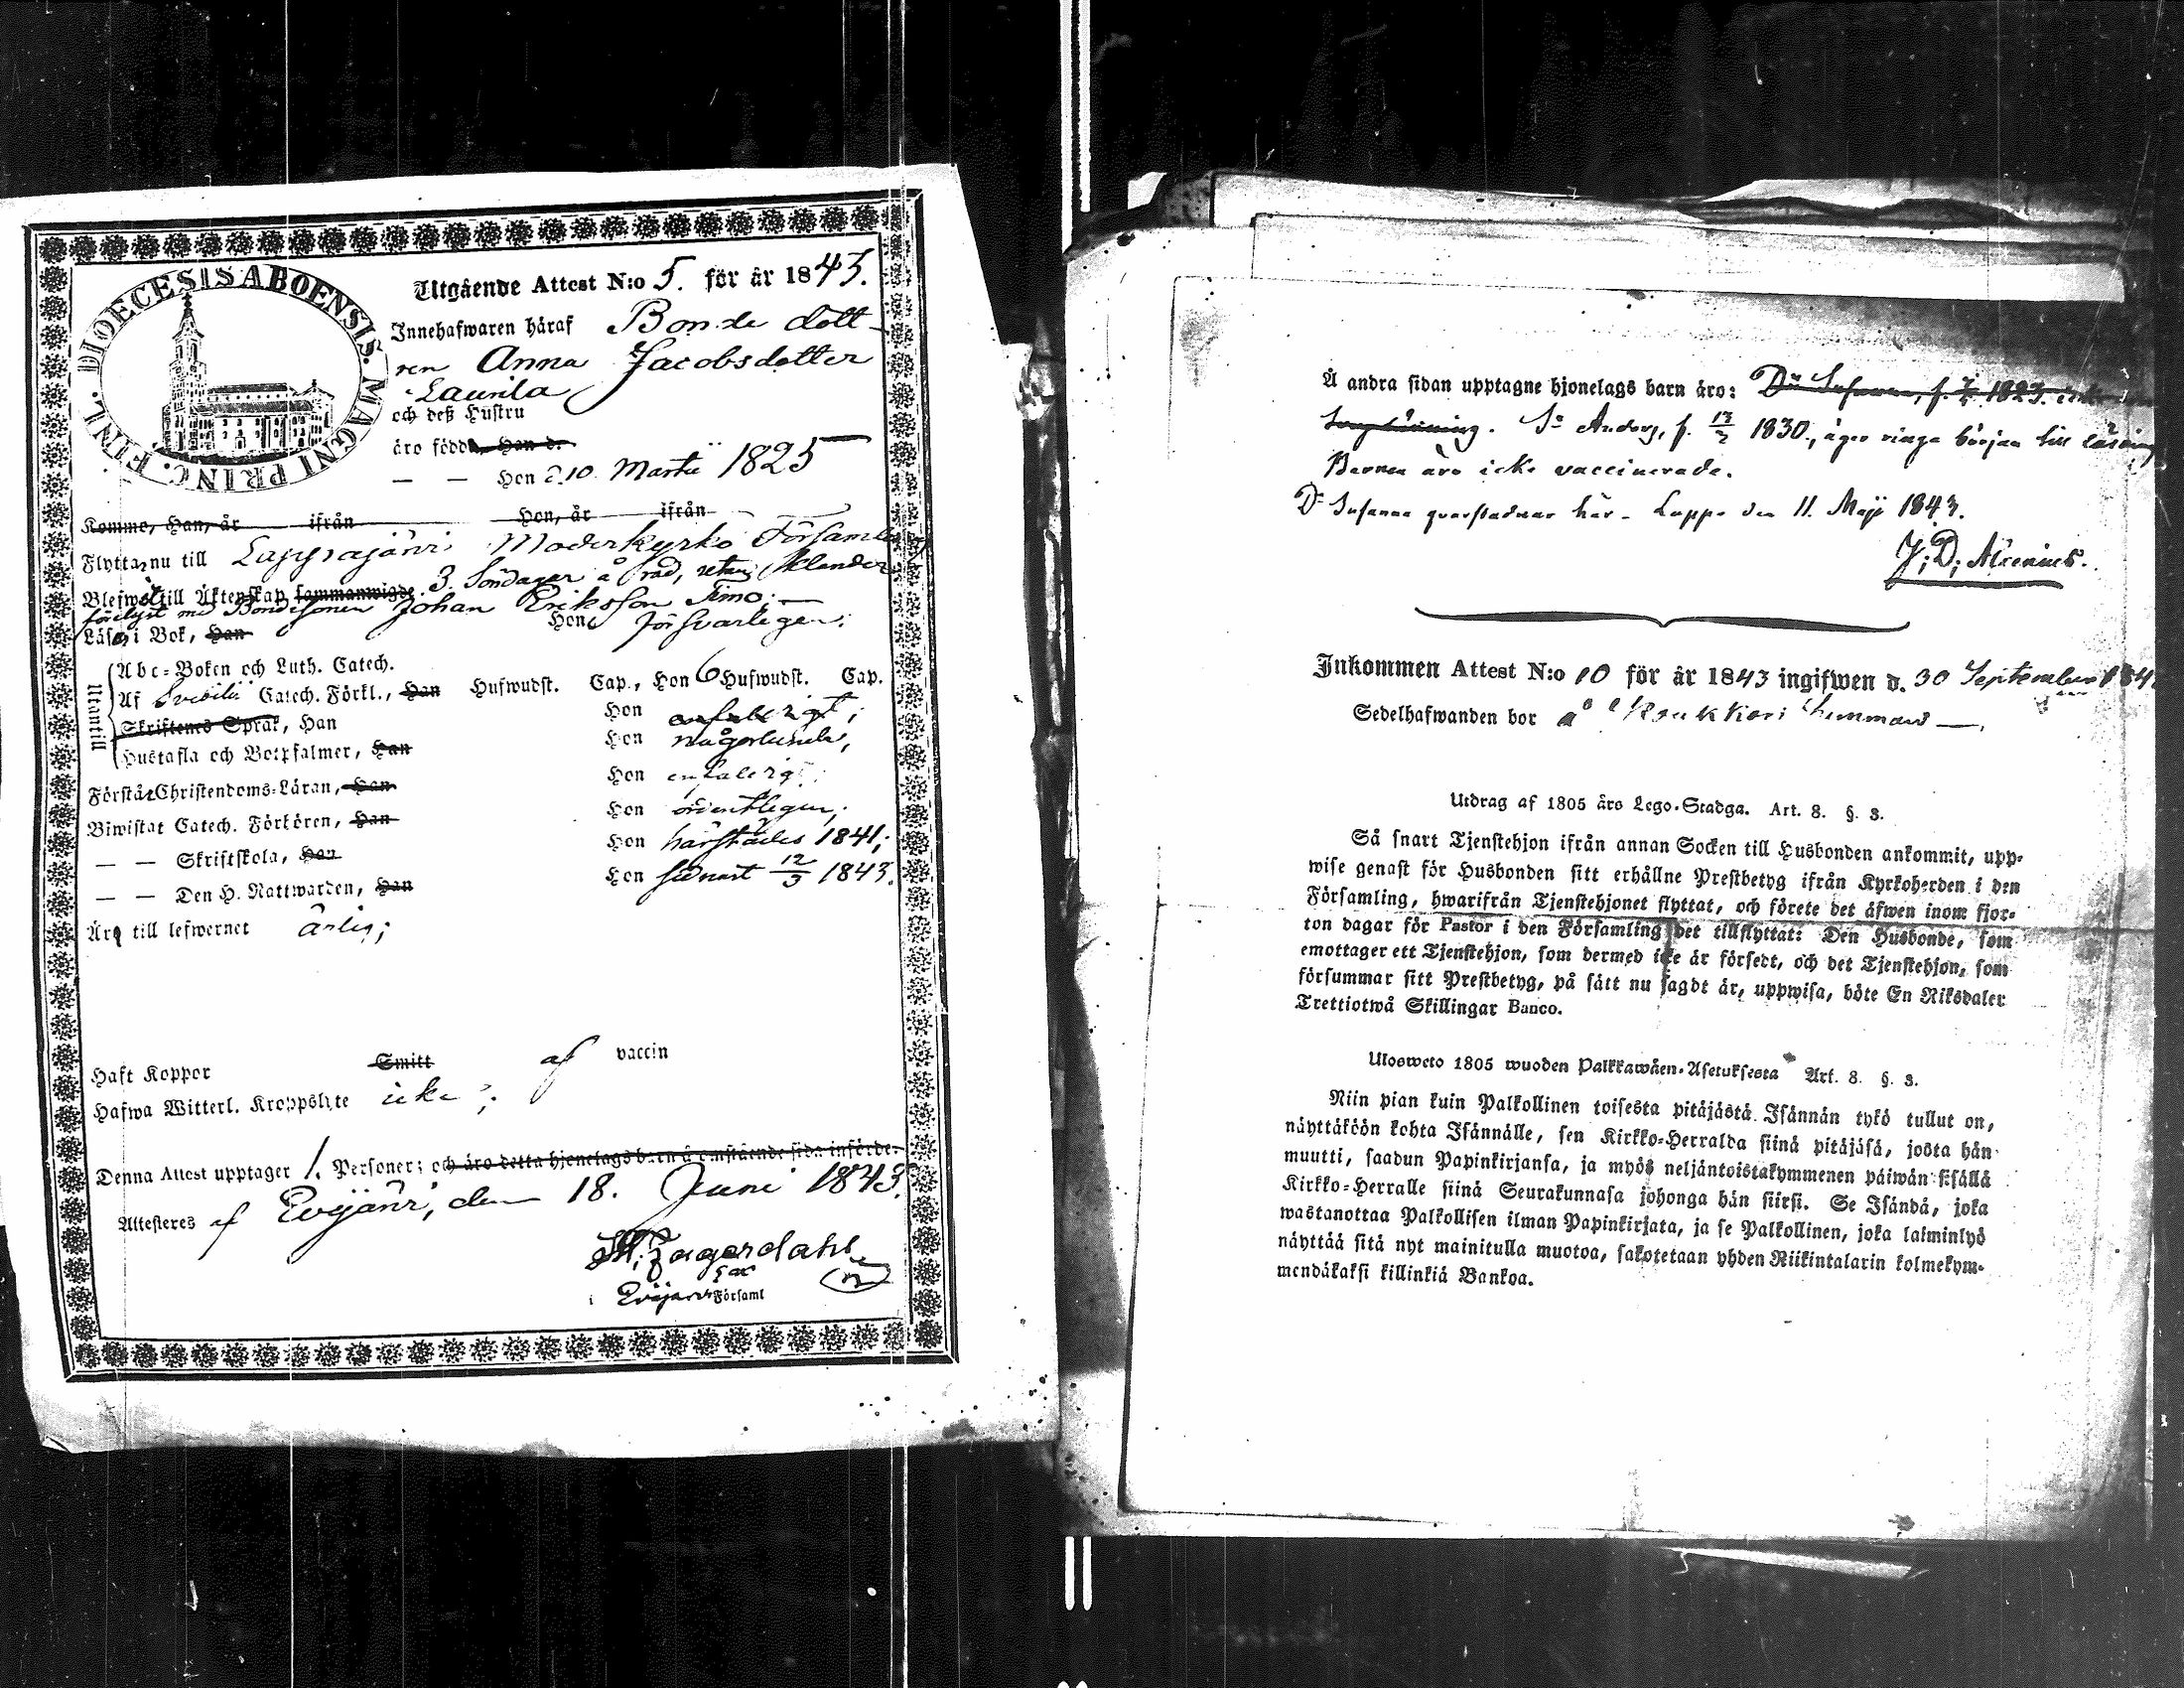 DIOECESIS ABOENSIS. MAGNI PRINC. FINL.
Utgående Attest N:o 5. för år 1843.
Innehafwaren häraf Bonde dott-
ren Anna Jacobsdotter
Laurila
och deß Hustru
äro födde, Han d.
— — Hon d. 10 Martii 1825
Komne, Han, år ifrån Hon, år ifrån
Flytta nu till Lappajärvi Moderkyrko Församling
Blefwo till Äktenskap sammanwigde 3. Söndagar å rad, utan klander
förelyst med Bondesonen Johan Eriksson Timo;
Läsa i Bok, Han Hon försvarligen;
Utantill
Abc-Boken och Luth. Catech.
Af Svebilii Catech. Förkl., Han Hufwudst. Cap., Hon 6 Hufwudst. Cap.
Skriftenes Språk, Han Hon
Hustafla och Botpsalmer, Han Hon någorlunda,
Förstå Christendoms-Läran, Han Hon enfaldigt;
Biwistat Catech. Förhören, Han Hon ordentligen;
— — Skriftskola, Han Hon härstädes 1841;
— — Den H. Nattwarden, Han Hon sednast 12/3 1843.
Äro till lefwernet ärlig;
Haft Koppor Smitt af vaccin
Hafwa Witterl. Kroppslyte icke;
Denna Attest upptager 1. Personer; och äro detta hjonelags barn å omstående sida införde.
Attesteres af Evijärvi, den 18. Juni 1843.
Zagerdahl
i Evijärvi Församl
Å andra sidan upptagne hjonelags barn äro: Dn Susanna, f. 1823.
So Anders, f. 13/2 1830, äger ringa början till läsning
Barnen äro icke vaccinerade.
Dn Susanna qvarstadnar här. Lappo den 11. Maji 1843.
J. D. Alcenius.
Inkommen Attest N:o 10 för år 1843 ingifwen d. 30 September 184
Sedelhafwanden bor å Koukkari hemman —.
Utdrag af 1805 års Lego-Stadga. Art. 8. §. 3.
Så snart Tjenstehjon ifrån annan Socken till Husbonden ankommit, upp-
wise genast för Husbonden sitt erhållne Prestbetyg ifrån Kyrkoherden i den
Församling, hwarifrån Tjenstehjonet flyttat, och förete det äfwen inom fjor-
ton dagar för Pastor i den Församling det tillflyttat: Den Husbonde, som
emottager ett Tjenstehjon, som dermed icke är försedt, och det Tjenstehjon, som
försummar sitt Prestbetyg, på sätt nu sagdt är, uppwisa, böte En Riksdaler
Trettiotwå Skillingar Banco.
Ulosweto 1805 wuoden Palkkawäen-Asetuksesta Art. 8. §. 3.
Niin pian kuin Palkollinen toisesta pitäjästä Isännän tykö tullut on,
näyttäköön kohta Isännälle, sen Kirkko-Herralda siinä pitäjäsä, josta hän
muutti, saadun Papinkirjansa, ja myös neljäntoistakymmenen päiwän sisällä
Kirkko-Herralle siinä Seurakunnasa johonga hän siirsi. Se Isändä, joka
wastanottaa Palkollisen ilman Papinkirjata, ja se Palkollinen, joka laiminlyö
näyttää sitä nyt mainitulla muotoa, sakotetaan yhden Riikintalarin kolmekym-
mendäkaksi killinkiä Bankoa.